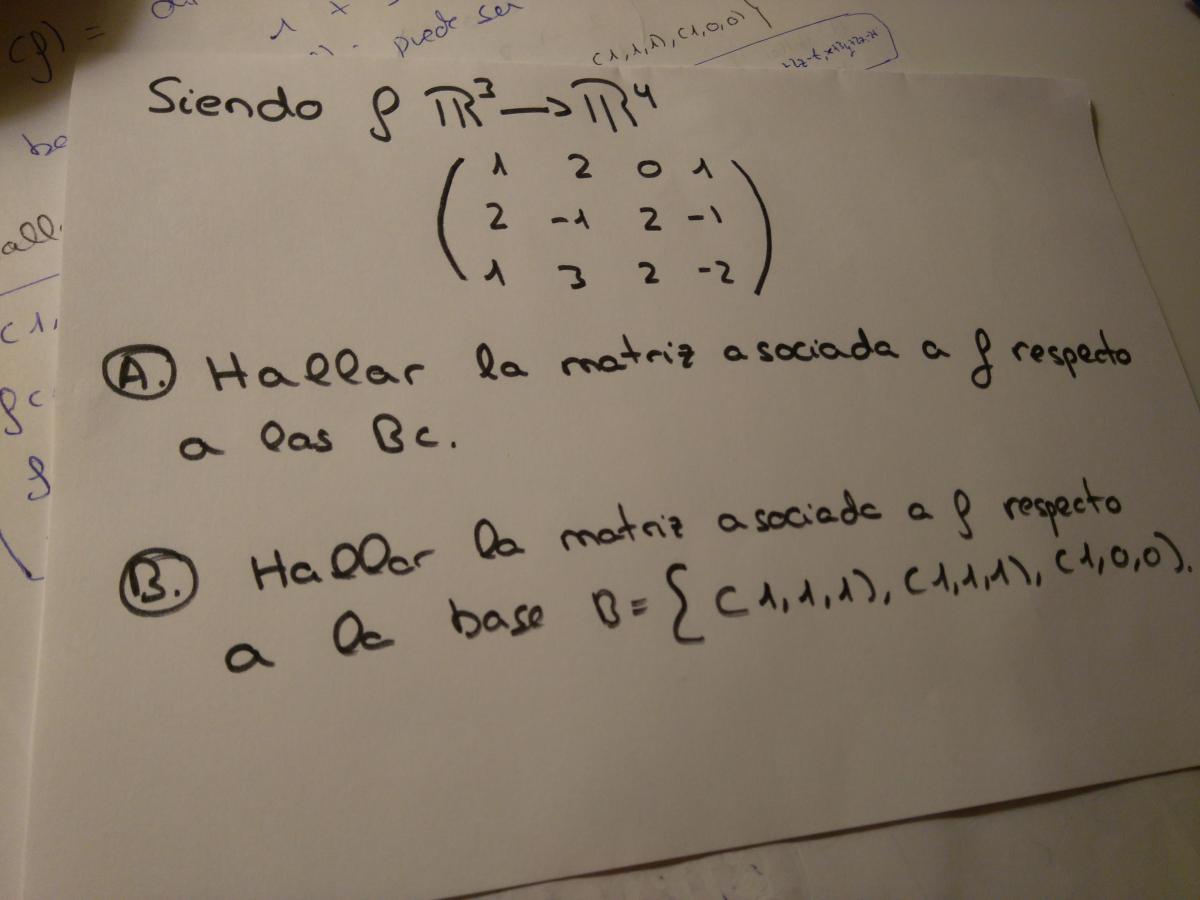 (f) =
1 x
puede ser
(1,1,1), (1,0,0)}
be
all
(1,
Siendo f ℝ³ → ℝ⁴
( 1 2 0 1
2 -1 2 -1
1 3 2 -2 )
A. Hallar la matriz asociada a f respecto
a las Bc.
B. Hallar la matriz asociada a f respecto
a la base B = { (1,1,1), (1,1,1), (1,0,0).